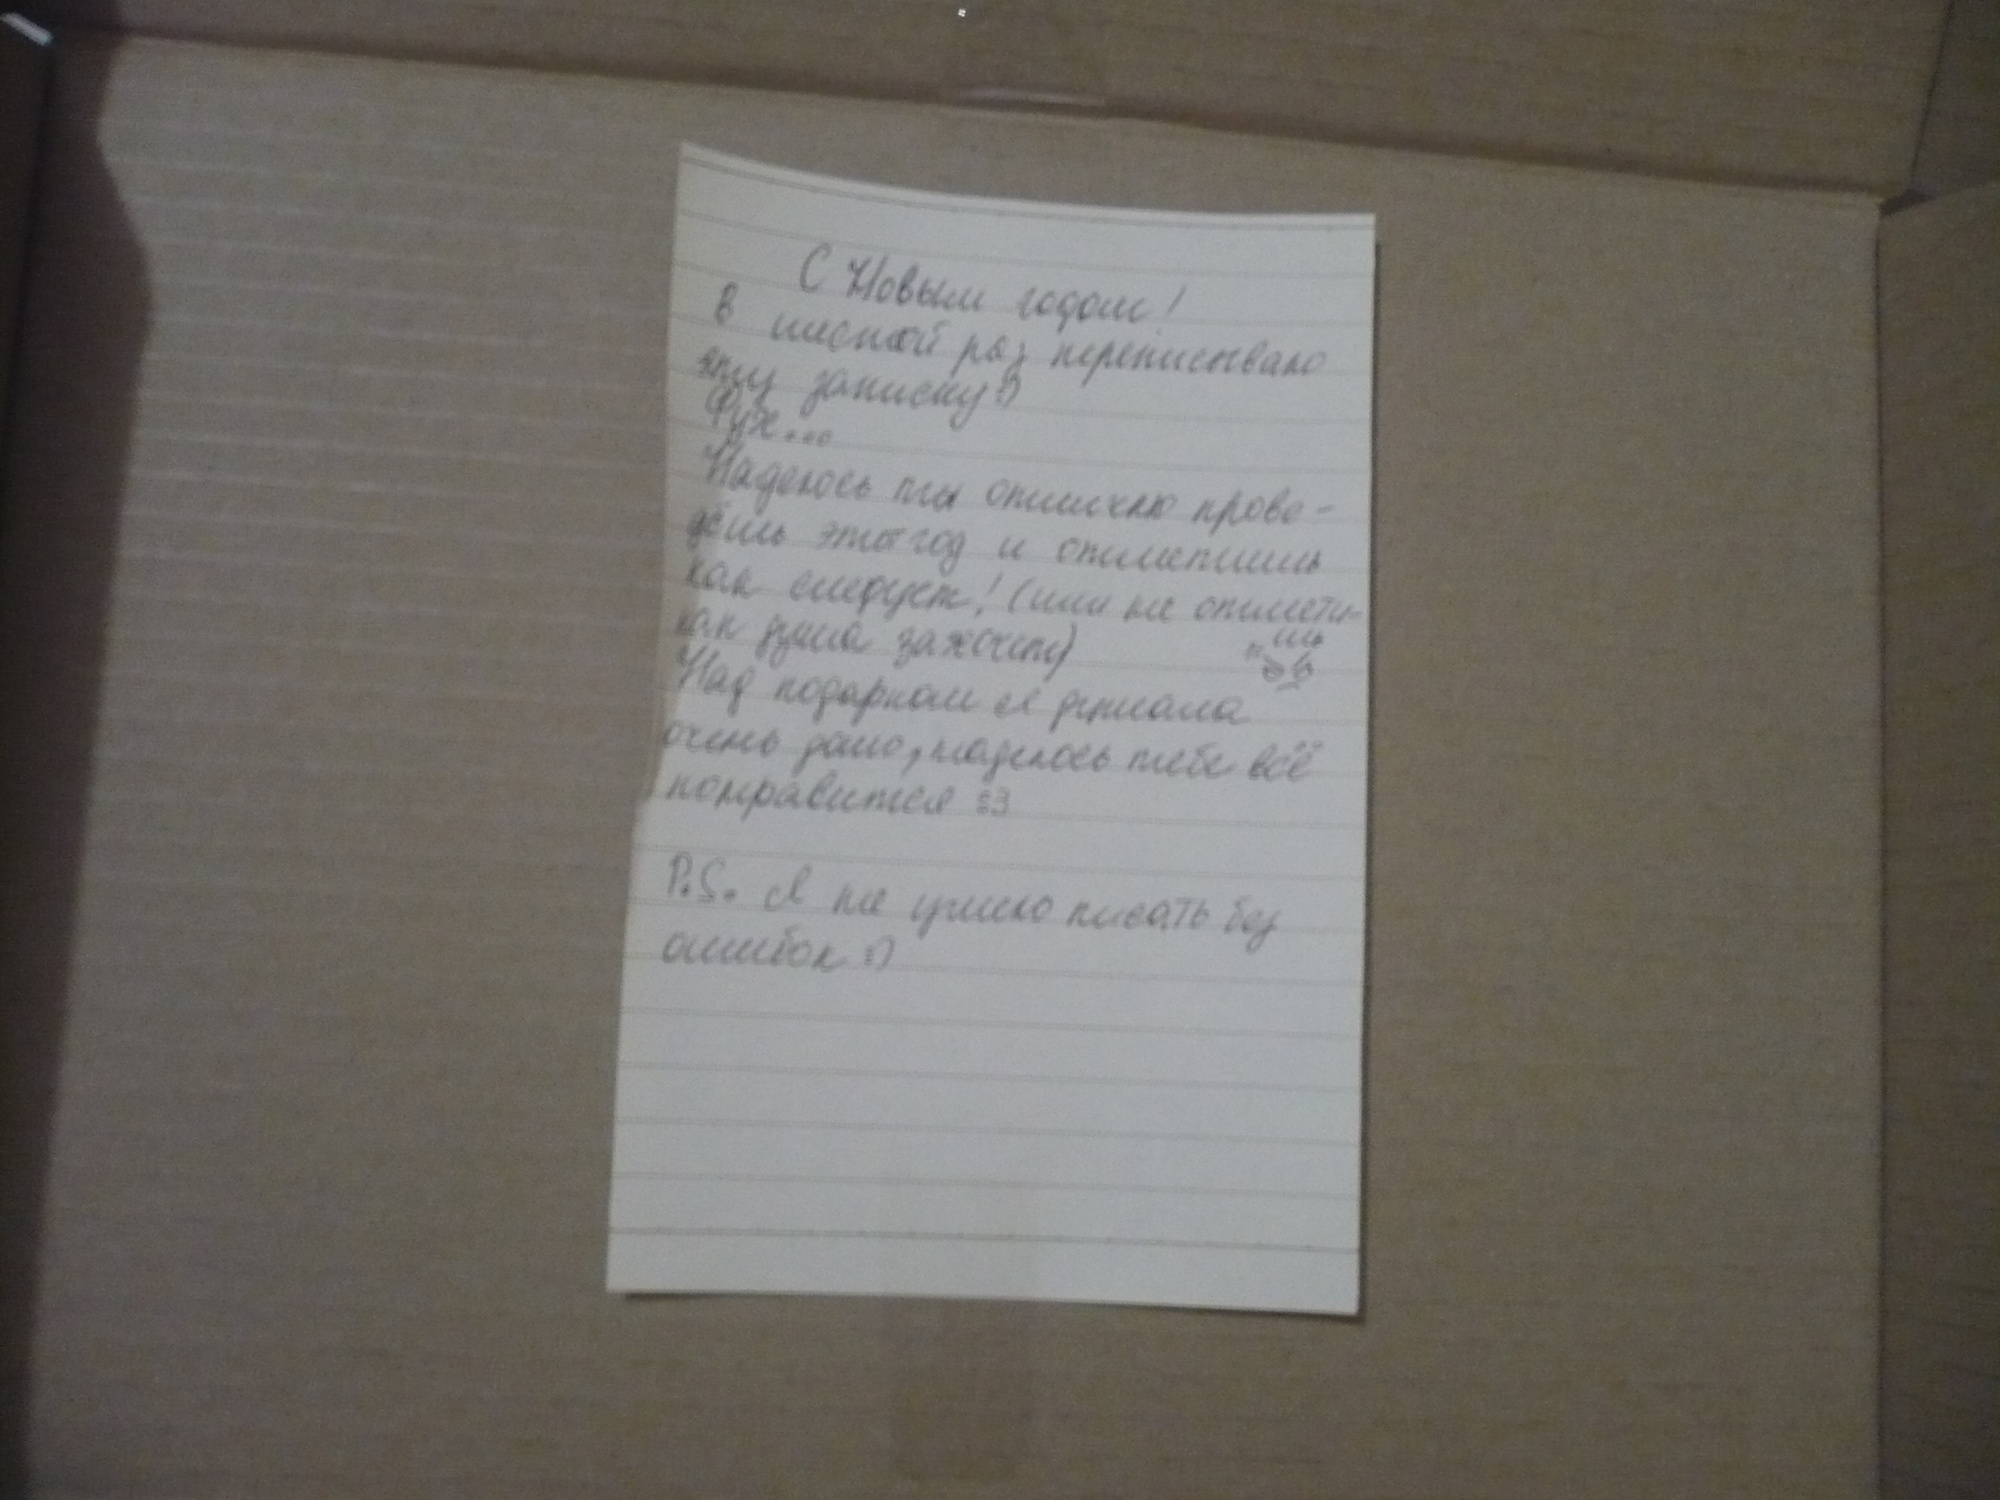 С Новым годом!
В шестой раз переписываю
эту записку :)
Фух...
Надеюсь ты отлично прове-
дёшь этот год и отметишь
как следует! (или не отмети-
шь
как душа захочет)
Над подарком я думала
очень долго, надеюсь тебе всё
понравится :3
P.S. Я не умею писать без
ошибок :)